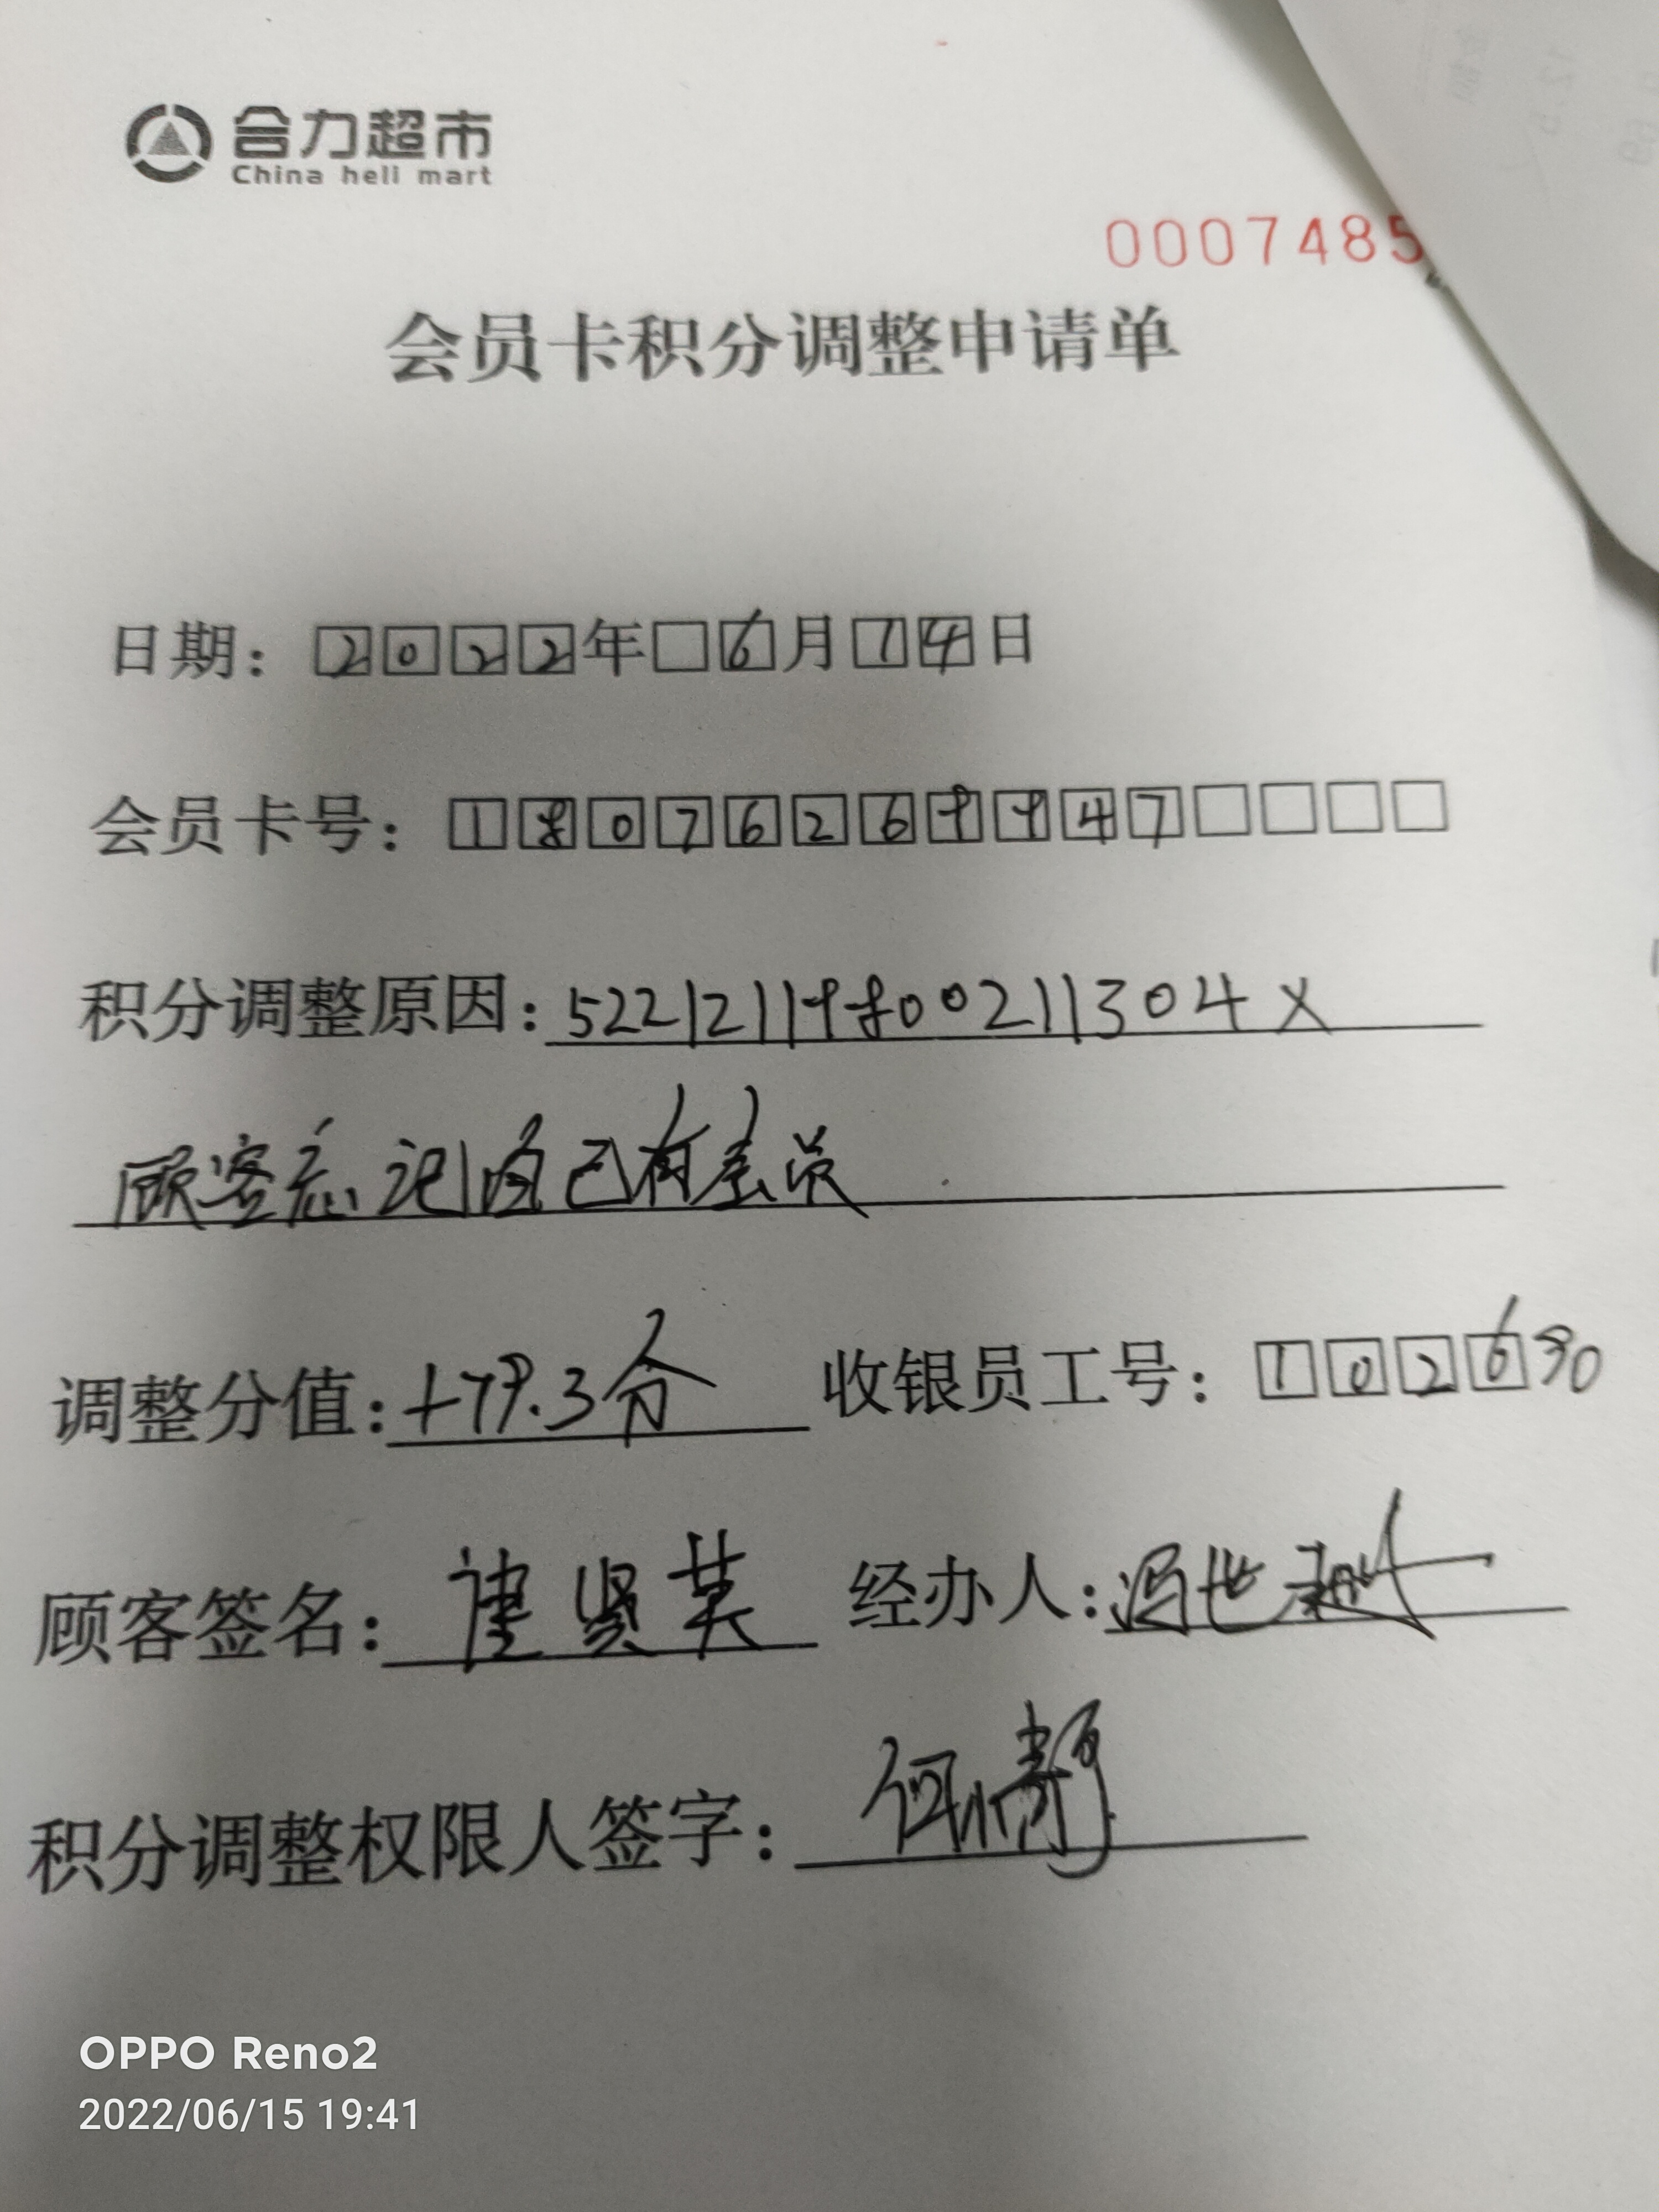 合力超市
China heli mart
0007485
会员卡积分调整申请单
日期：2022年6月14日
会员卡号：18076269947
积分调整原因：52212119800211304X
顾客忘记自己有会员
调整分值：+79.3分 收银员工号：102690
顾客签名：贤英 经办人：冯世
积分调整权限人签字：何
OPPO Reno2
2022/06/15 19:41